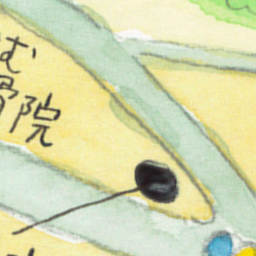 む
骨院